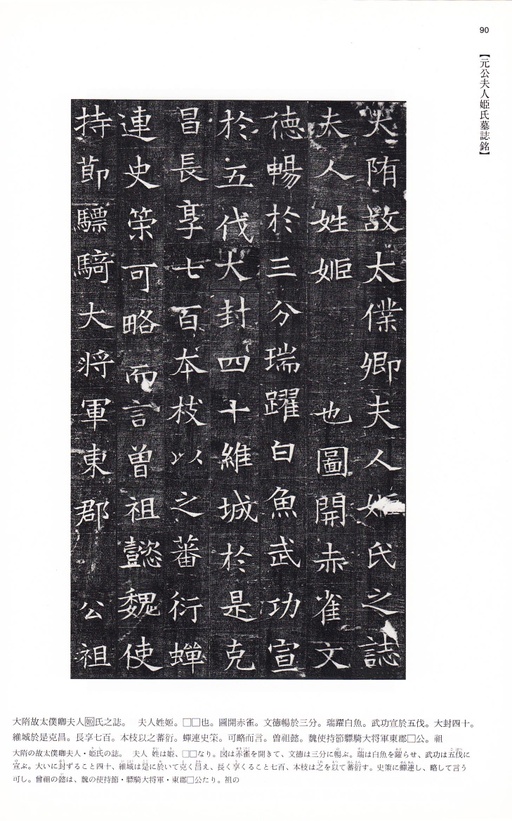 90
【元公夫人姫氏墓誌銘】
大隋故太僕卿夫人姬氏之誌
夫人姓姬　　也圖開赤雀文
徳暢於三分瑞躍白魚武功宣
於五伐大封四十維城於是克
昌長享七百本枝以之蕃衍蟬
連史策可略而言曽祖懿魏使
持節驃騎大将軍東郡　公祖
大隋故太僕卿夫人姬氏之誌。　夫人姓姫、□□也。圖開赤雀。文徳暢於三分。瑞躍白魚。武功宣於五伐。大封四十。
維城於是克昌。長享七百。本枝以之蕃衍。蟬連史策。可略而言。曽祖懿。魏使持節驃騎大将軍東郡□公。祖
大隋の故太僕卿夫人・姫氏の誌。　夫人　姓は姫、□□なり。図は赤雀を開きて、文徳は三分に暢ぶ。瑞は白魚を躍らせ、武功は五伐に
宣ぶ。大いに封ずること四十、維城は是に於いて克く昌え、長く享くること七百、本枝は之を以て蕃衍す。史策に蟬連し、略して言う
可し。曽祖の懿は、魏の使持節・驃騎大将軍・東郡□公たり。祖の